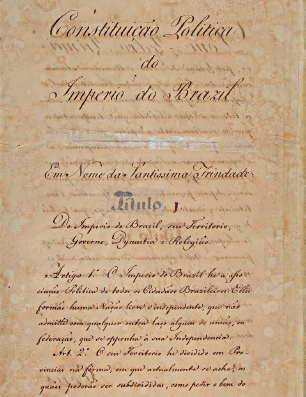 Constituição Politica
do
Imperio do Brazil
Em Nome da Santissima Trindade.
Titulo 1.
Do Imperio do Brazil, seu Territorio,
Governo, Dynastia e Religião.
Artigo 1.º O Imperio do Brazil he a asso-
ciação Politica de todos os Cidadãos Brazileiros. Elles
formão huma Nação livre e independente, que não
admitte com qualquer outra laço algum de união, ou
federaçao, que se opponha á sua Independencia.
Art. 2.º O seu Territorio he dividido em Pro-
vincias na fórma, em que actualmente se acha, as
quaes poderão ser subdivididas, como pedir o bem do